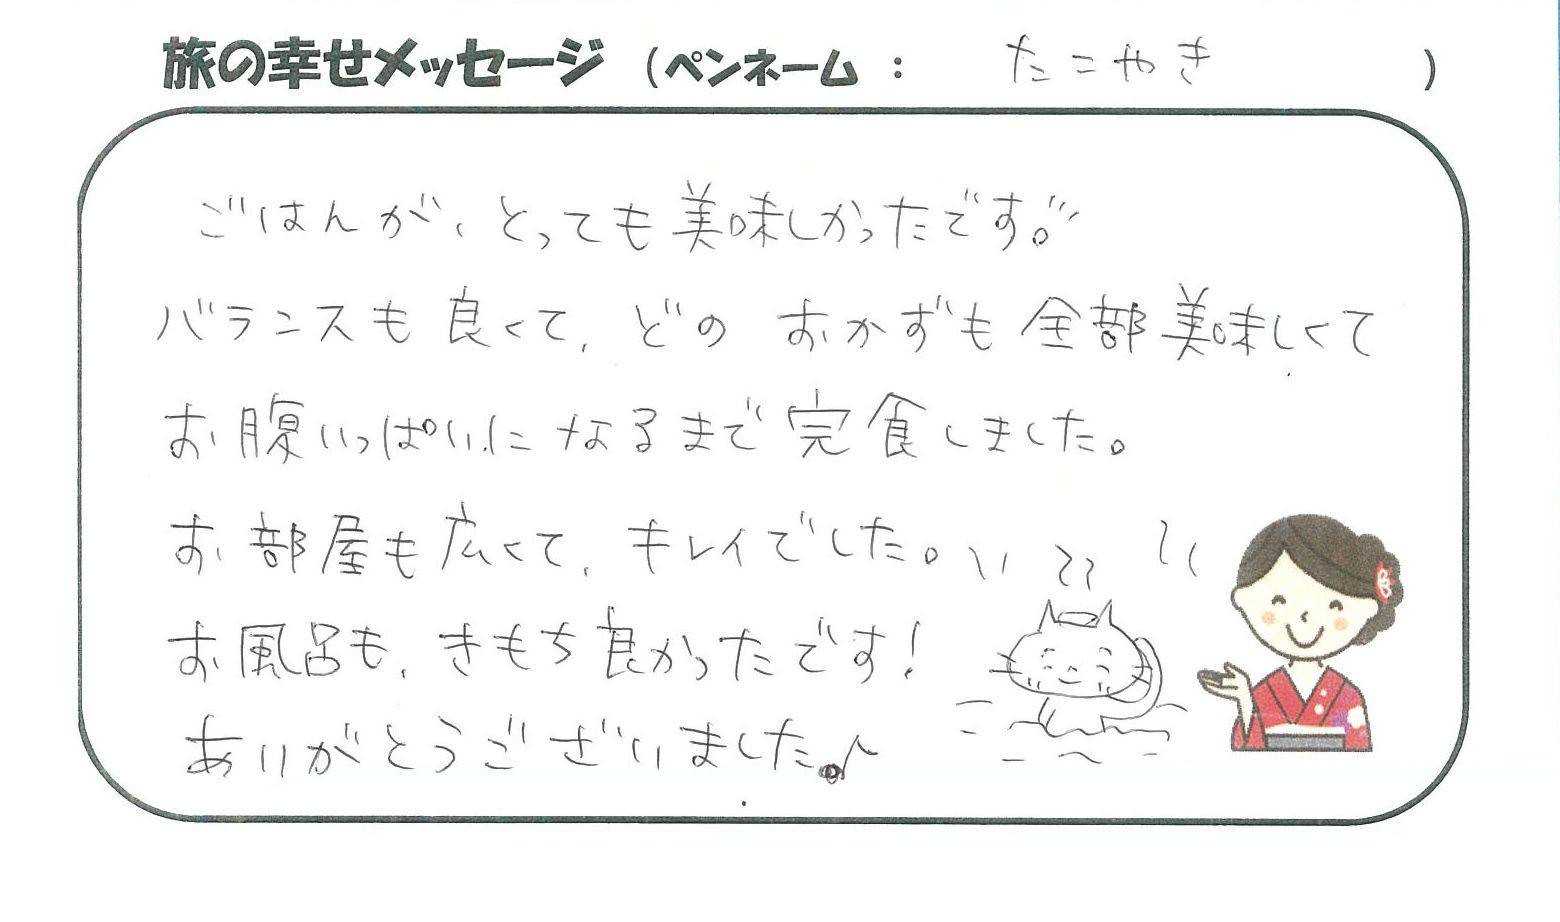 旅の幸せメッセージ（ペンネーム： たこやき ）
ごはんが、とっても美味しかったです。
バランスも良くて、どのおかずも全部美味しくて
お腹いっぱいになるまで完食しました。
お部屋も広くて、キレイでした。
お風呂も、きもち良かったです！
ありがとうございました♪